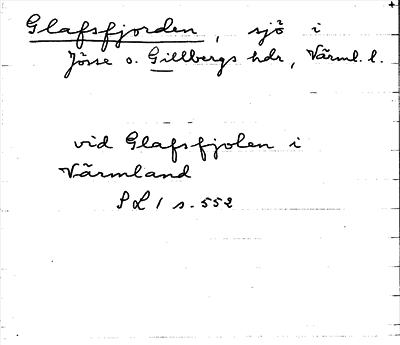 Glafsfjorden, sjö i
Jösse o. Gillbergs hdr, Värml. l.
vid Glafsfjolen i
Värmland
SL 1 s. 552